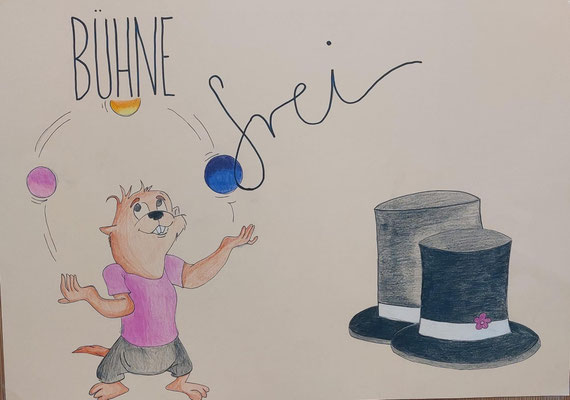 BÜHNE
frei